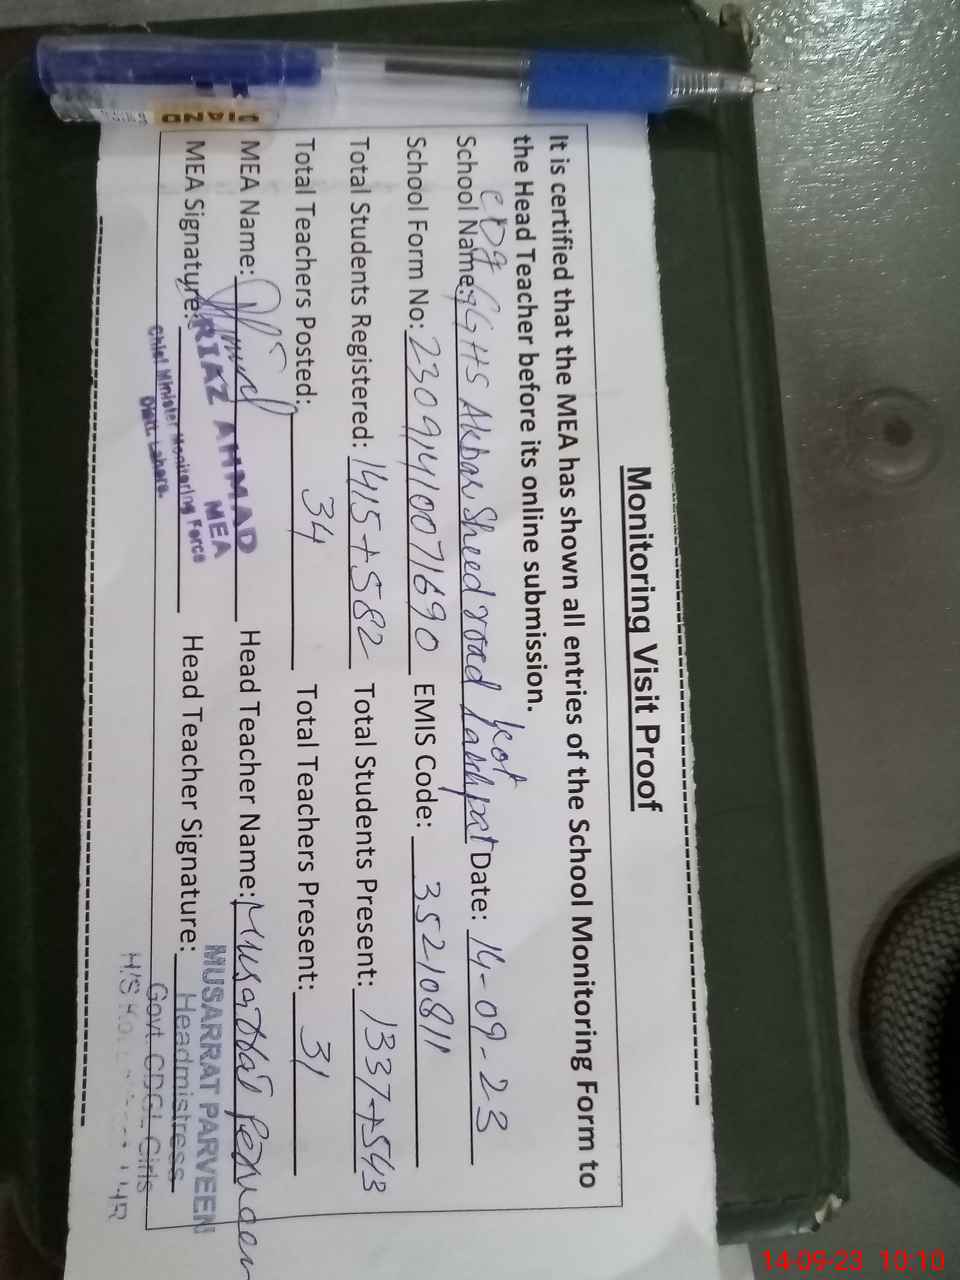 Monitoring Visit Proof
It is certified that the MEA has shown all entries of the School Monitoring Form to
the Head Teacher before its online submission.
CDG kot
School Name: GGHS Akbar Sheed road Lakhpat Date: 14-09-23
School Form No: 23091410071690 EMIS Code: 35210811
Total Students Registered: 1415+582 Total Students Present: 1337+543
Total Teachers Posted: 34 Total Teachers Present: 31
MEA Name: Head Teacher Name: Musarrat Perveen
MEA Signature: Head Teacher Signature:
RIAZ AHMAD
MEA
Chief Minister Monitoring Force
Distt. Lahore.
MUSARRAT PARVEEN
Headmistress
Govt. CDGL Girls
H/S
14-09-23 10:10